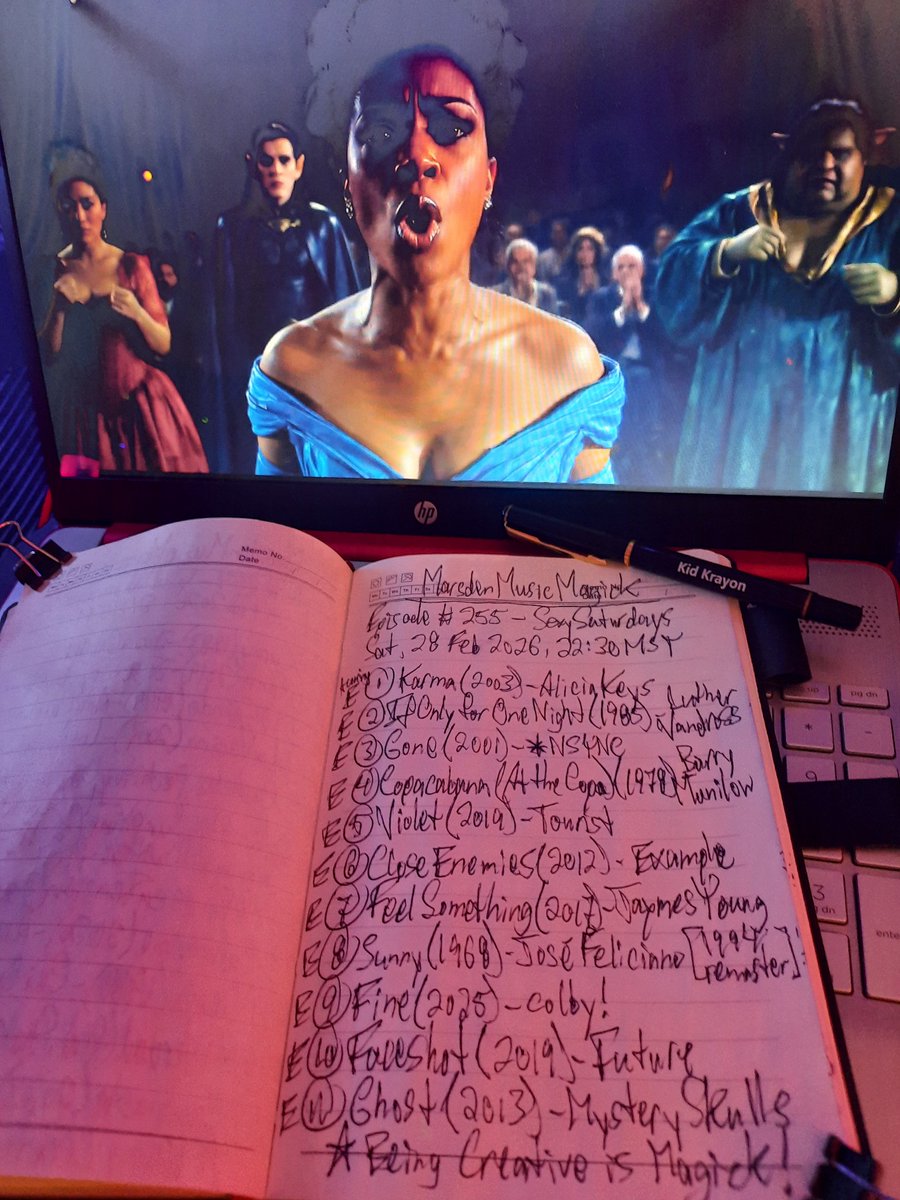 hp
Kid Krayon
Memo No.
Date
Mo Tu We Th Fr Sa Su
Marsden Music Magick
Episode # 255 - Sexy Saturdays
Sat, 28 Feb 2026, 22:30 MST
E ① Karma (2003) - Alicia Keys
E ② If Only for One Night (1985) - Luther Vandross
E ③ Gone (2001) - *NSYNC
E ④ Copacabana (At the Copa) (1978) Barry Manilow
E ⑤ Violet (2019) - Tourist
E ⑥ Close Enemies (2012) - Example
E ⑦ Feel Something (2017) - Jaymes Young
E ⑧ Sunny (1968) - José Feliciano [1994 remaster]
E ⑨ Fine (2025) - colby!
E ⑩ Faceshot (2019) - Future
E ⑪ Ghost (2013) - Mystery Skulls
☆ Being Creative is Magick!
pg up
pg dn
*
-
9
3
pg dn
enter